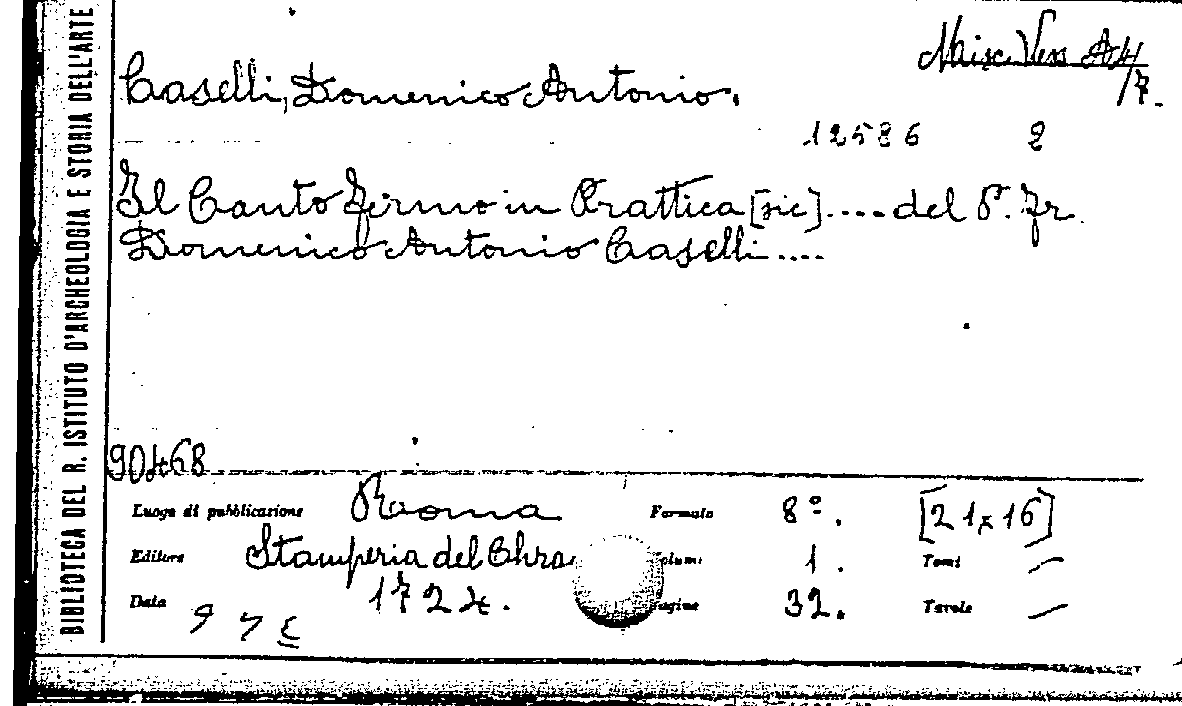 BIBLIOTECA DEL R. ISTITUTO D'ARCHEOLOGIA E STORIA DELL'ARTE
Misc. Vess A4
/7.
Caselli, Domenico Antonio.
12586 2
Il Canto fermo in Prattica [sic].... del P. Fr.
Domenico Antonio Caselli....
90468
Luogo di pubblicazione Roma Formato 8º. [21x16]
Editore Stamperia del Chra Volumi 1. Tomi —
Data 1724. Pagine 32. Tavole —